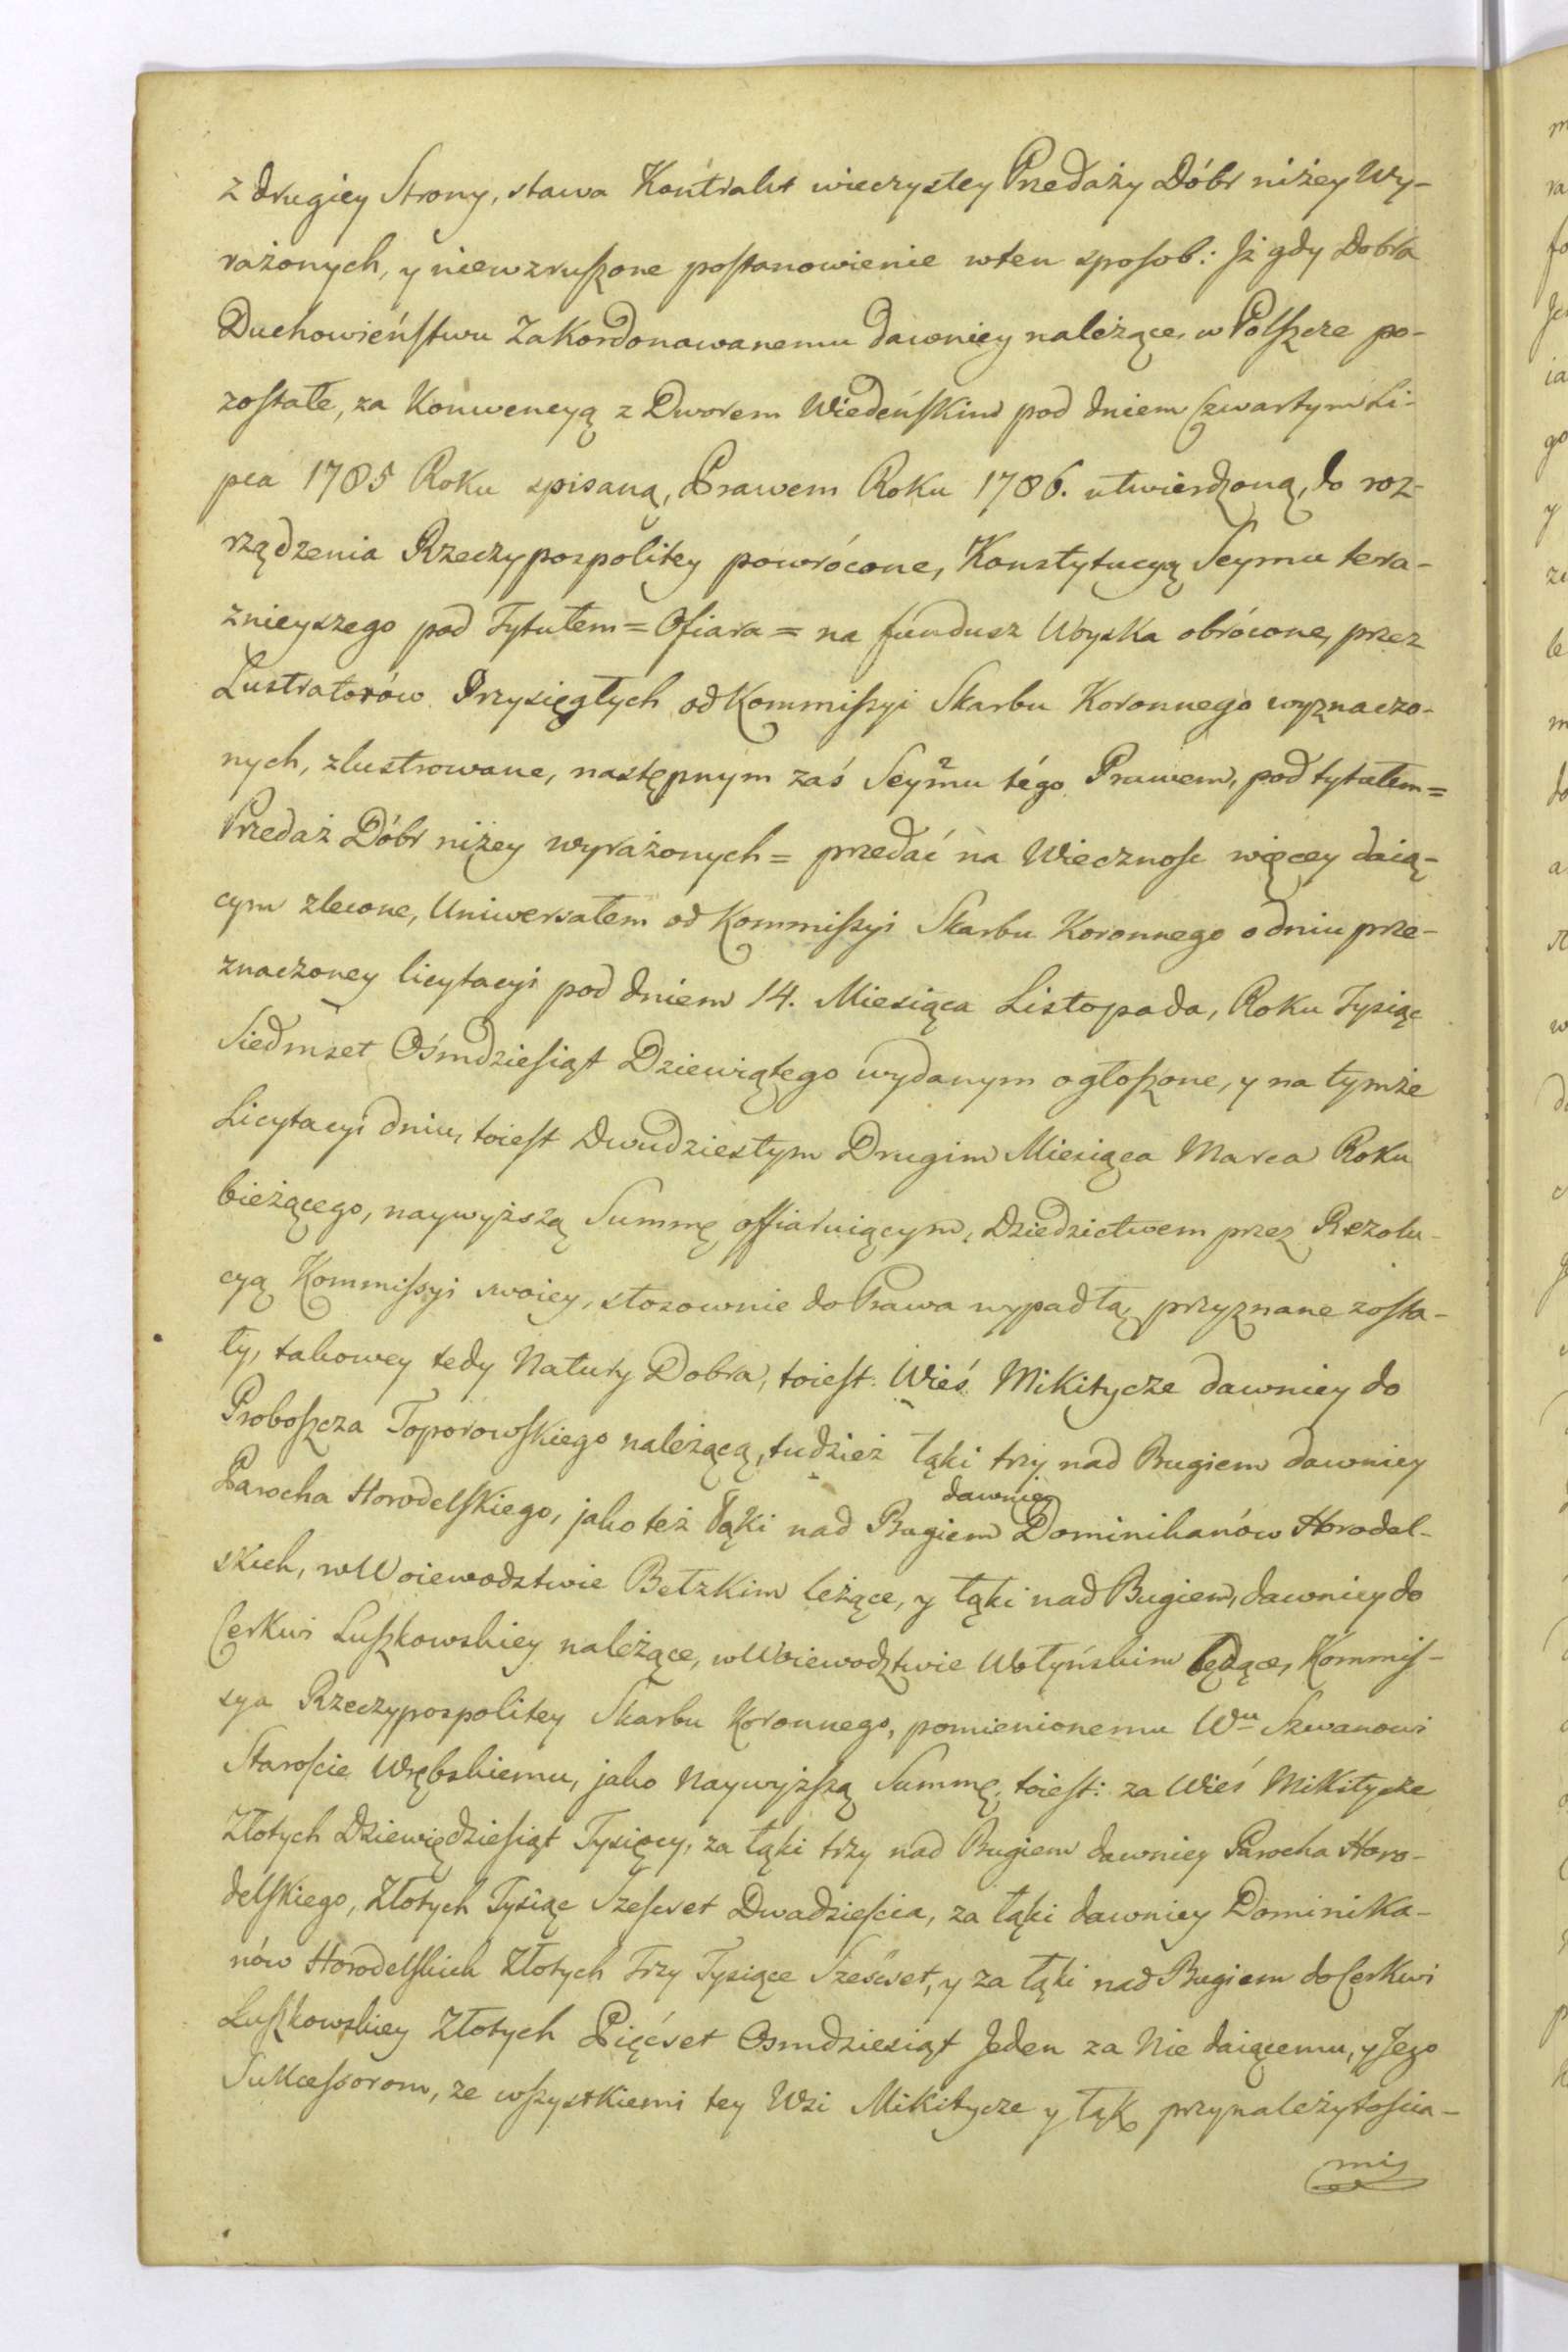 z drugiey Strony, stawa Kontrakt wieczystey Przedaży Dóbr niżey Wy-
rażonych, y niewzruszone postanowienie w ten sposob: Jż gdy Dobra
Duchowieństwu Zakordonowanemu dawniey należące, w Polszcze po-
zostałe, za Konwencyą z Dworem Wiedeńskim pod dniem Czwartym Li-
pca 1785 Roku spisaną, Prawem Roku 1786. utwierdzoną, do roz-
rządzenia Rzeczypospolitey powrócone, Konstytucyą Seymu tera-
znieyszego pod Tytułem = Ofiara = na fundusz Woyska obrócone, przez
Lustratorów Przysięgłych od Kommissyi Skarbu Koronnego wyznaczo-
nych, zlustrowane, następnym zaś Seymu tégo Prawem, pod tytułem =
Przedaż Dóbr niżey wyrażonych = przedać na Wiecznosc więcey daią-
cym zlecone, Uniwersałem od Kommissyi Skarbu Koronnego o dniu prze-
znaczoney licytacyi pod dniem 14. Miesiąca Listopada, Roku Tysiąc
Siedmset Ośmdziesiąt Dziewiątego wydanym ogłoszone, y na tymże
Licytacyi dniu, toiest Dwudziestym Drugim Miesiąca Marca Roku
bieżącego, naywyższą Summę offiaruiącym, Dziedzictwem przez Rezolu-
cyą Kommissyi swoiey, stosownie do Prawa wypadłą, przyznane zosta-
ły, takowey tedy Natury Dobra, toiest: Wieś Mikitycze dawniey do
Proboszcza Toporowskiego należącą, tudzież łąki trzy nad Bugiem dawniey
Parocha Horodelskiego, jako też łąki nad Bugiem dawniey Dominikanów Horodel-
skich, w Woiewodztwie Bełzkim leżące, y łąki nad Bugiem, dawniey do
Cerkwi Luszkowskiey należące, w Woiewodztwie Wołyńskim leżące, Kommis-
sya Rzeczypospolitey Skarbu Koronnego, pomienionemu Wu Szwanowi
Staroscie Wrębskiemu, jako Naywyższą Summę, toiest: za Wieś Mikitycze
Złotych Dziewiędziesiąt Tysięcy, za łąki trzy nad Bugiem dawniey Parocha Horo-
delskiego, Złotych Tysiąc Szescset Dwadziescia, za łąki dawniey Dominika-
nów Horodelskich Złotych Trzy Tysiące Sześćset, y za łąki nad Bugiem do Cerkwi
Luszkowskiey Złotych Pięćset Osmdziesiąt Jeden za Nie daiącemu, y Jego
Sukcessorom, ze wszystkiemi tey Wsi Mikitycze y łąk przynależytościa-
mi